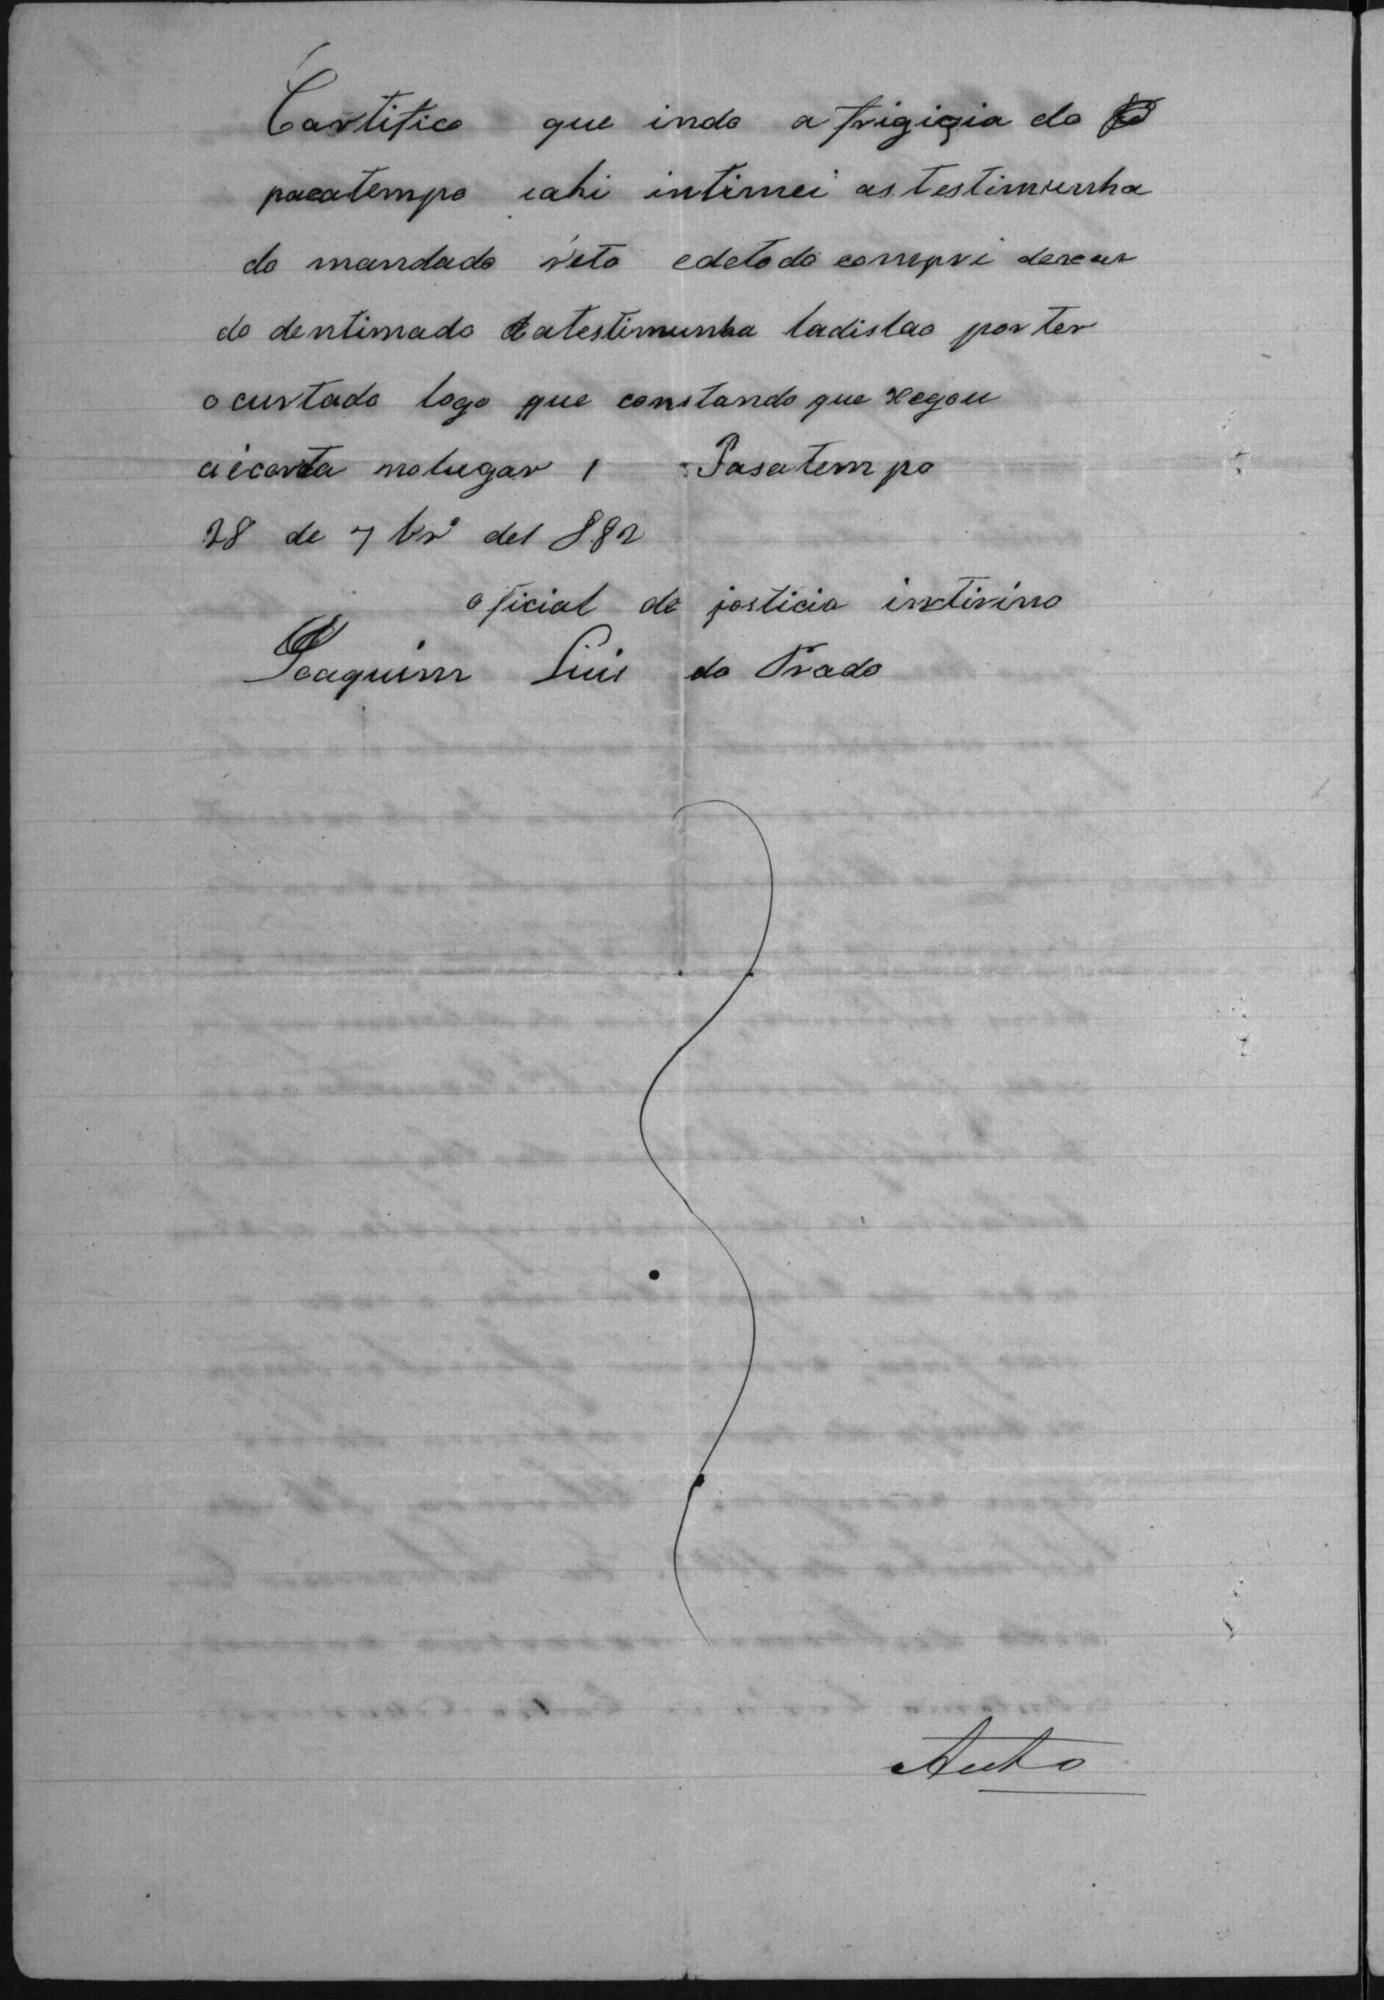 Cartifico que indo a frigigia do
pacatempo eahi intimei as testimunha
do mandado reto edetodo compri dexan
do dentimado atestimunha ladislao por ter
ocurtado logo que constando que xegou
aécorta nolugar , Pasatempo
28 de 7br.º de1882
oficial de josticia intirino
Joaquim Luis do Prado
Auto